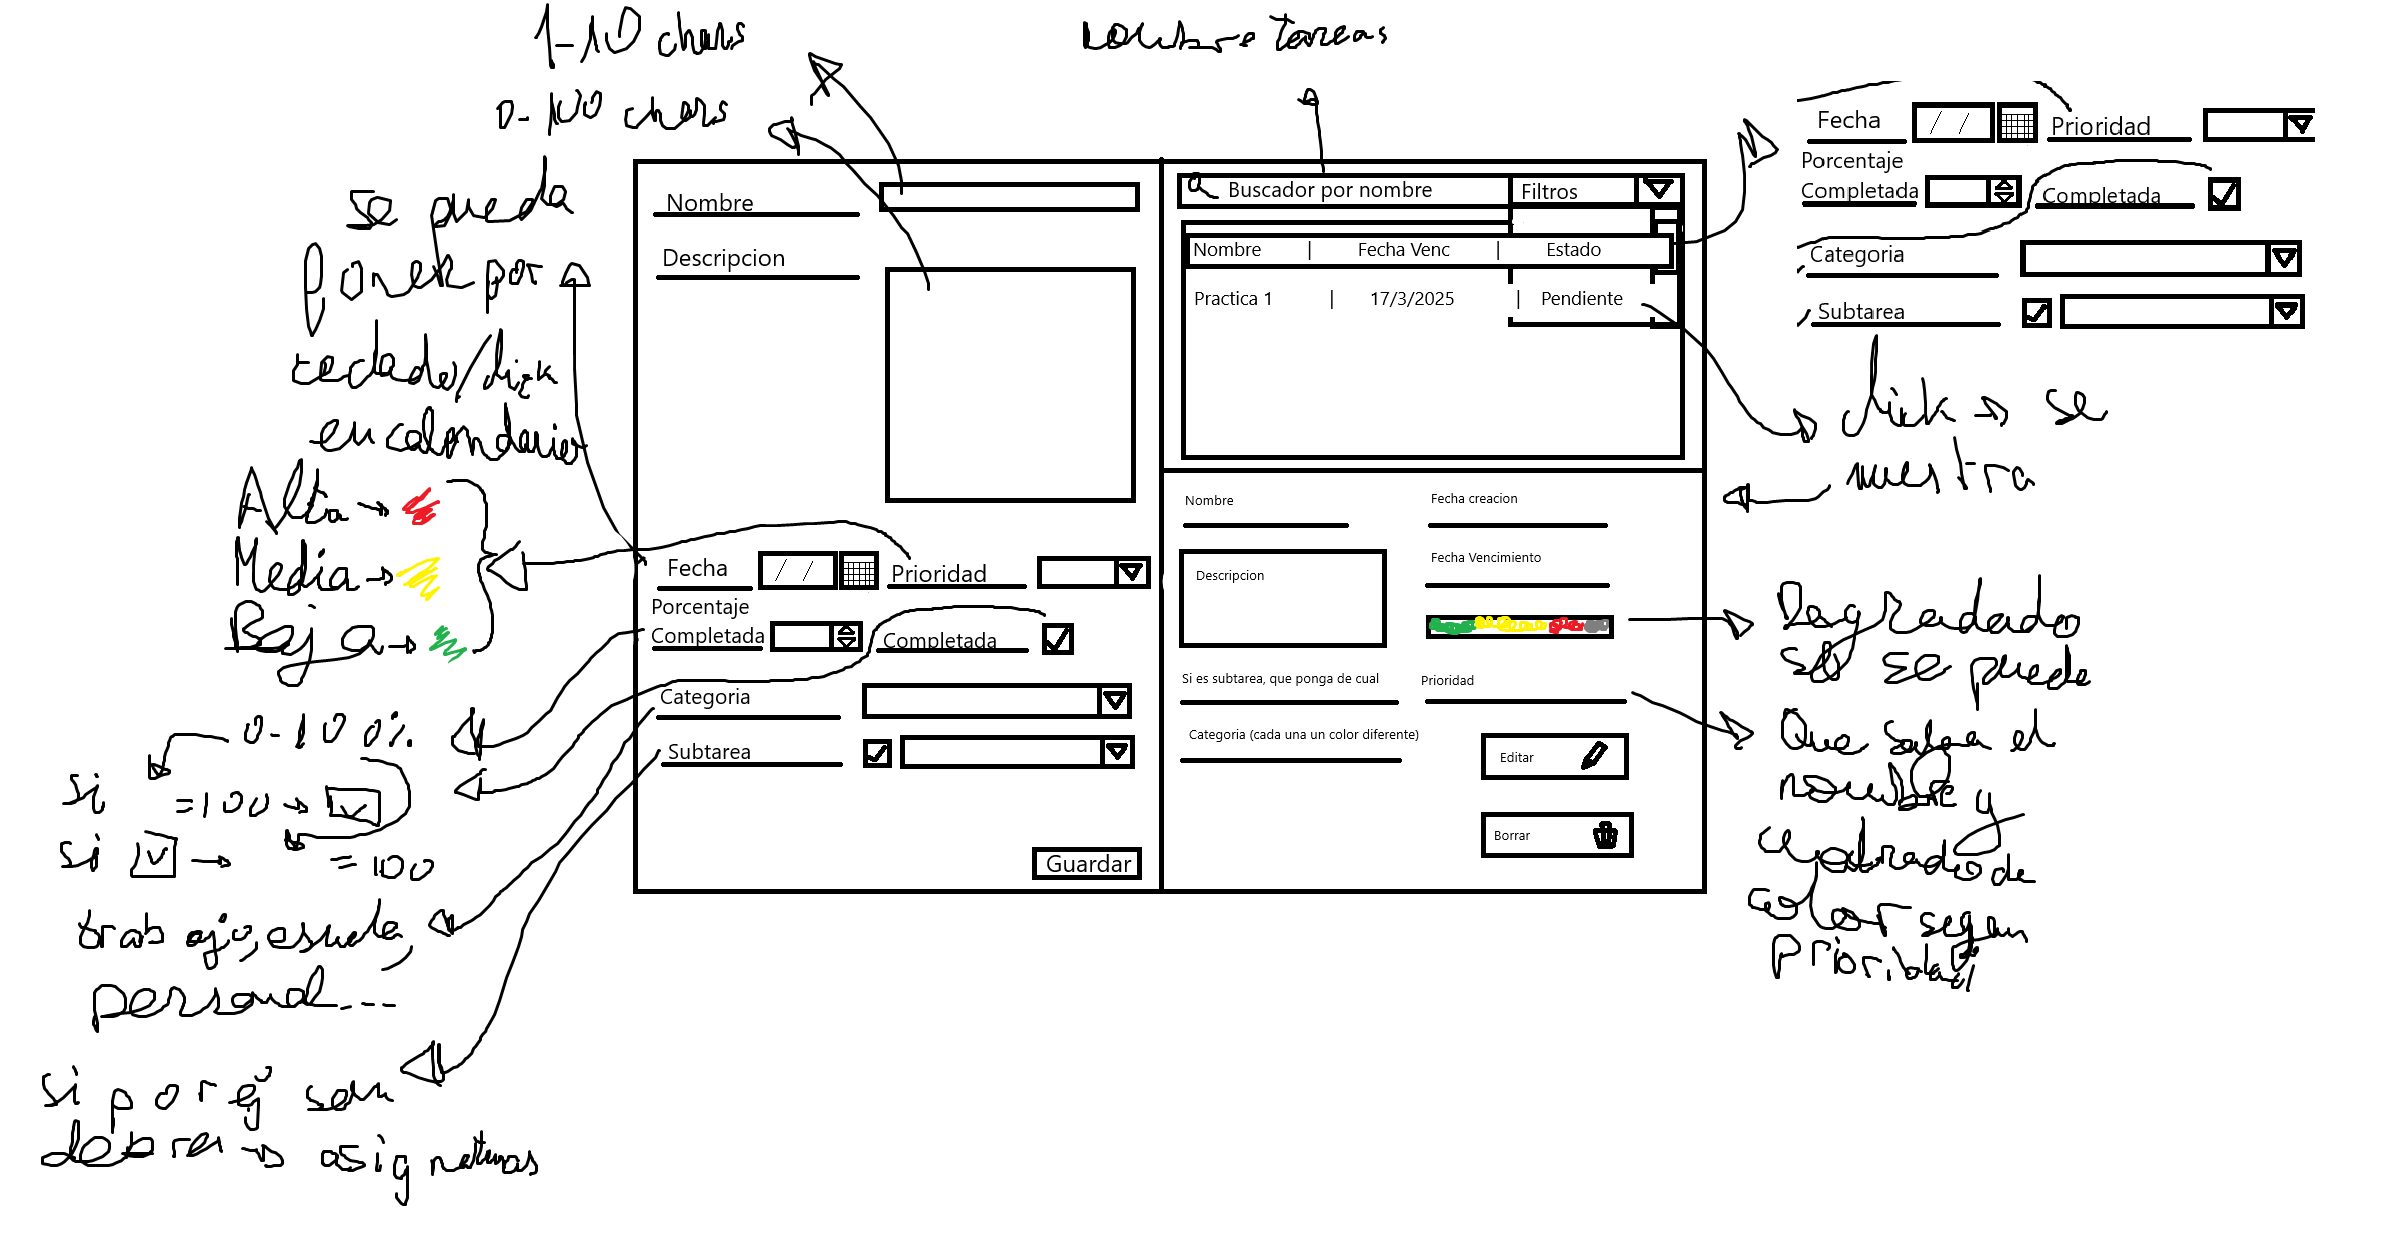 1-10 chars
0-100 chars
nombre tareas
se pueda
poner por
teclado/click
en calendario
Alta →
Media →
Baja →
0-100%
si =100 →
si → =100
trabajo, escuela,
personal...
si por ej son
deberes → asignaturas
Nombre
Descripcion
Fecha / / Prioridad
Porcentaje
Completada Completada
Categoria
Subtarea
Guardar
Buscador por nombre Filtros
Nombre | Fecha Venc | Estado
Practica 1 | 17/3/2025 | Pendiente
Nombre Fecha creacion
Fecha Vencimiento
Descripcion
Si es subtarea, que ponga de cual Prioridad
Categoria (cada una un color diferente)
Editar
Borrar
Fecha / / Prioridad
Porcentaje
Completada Completada
Categoria
Subtarea
click → se
muestra
Degradado
si se puede
Que salga el
nombre y
cuadrado de
color segun
prioridad